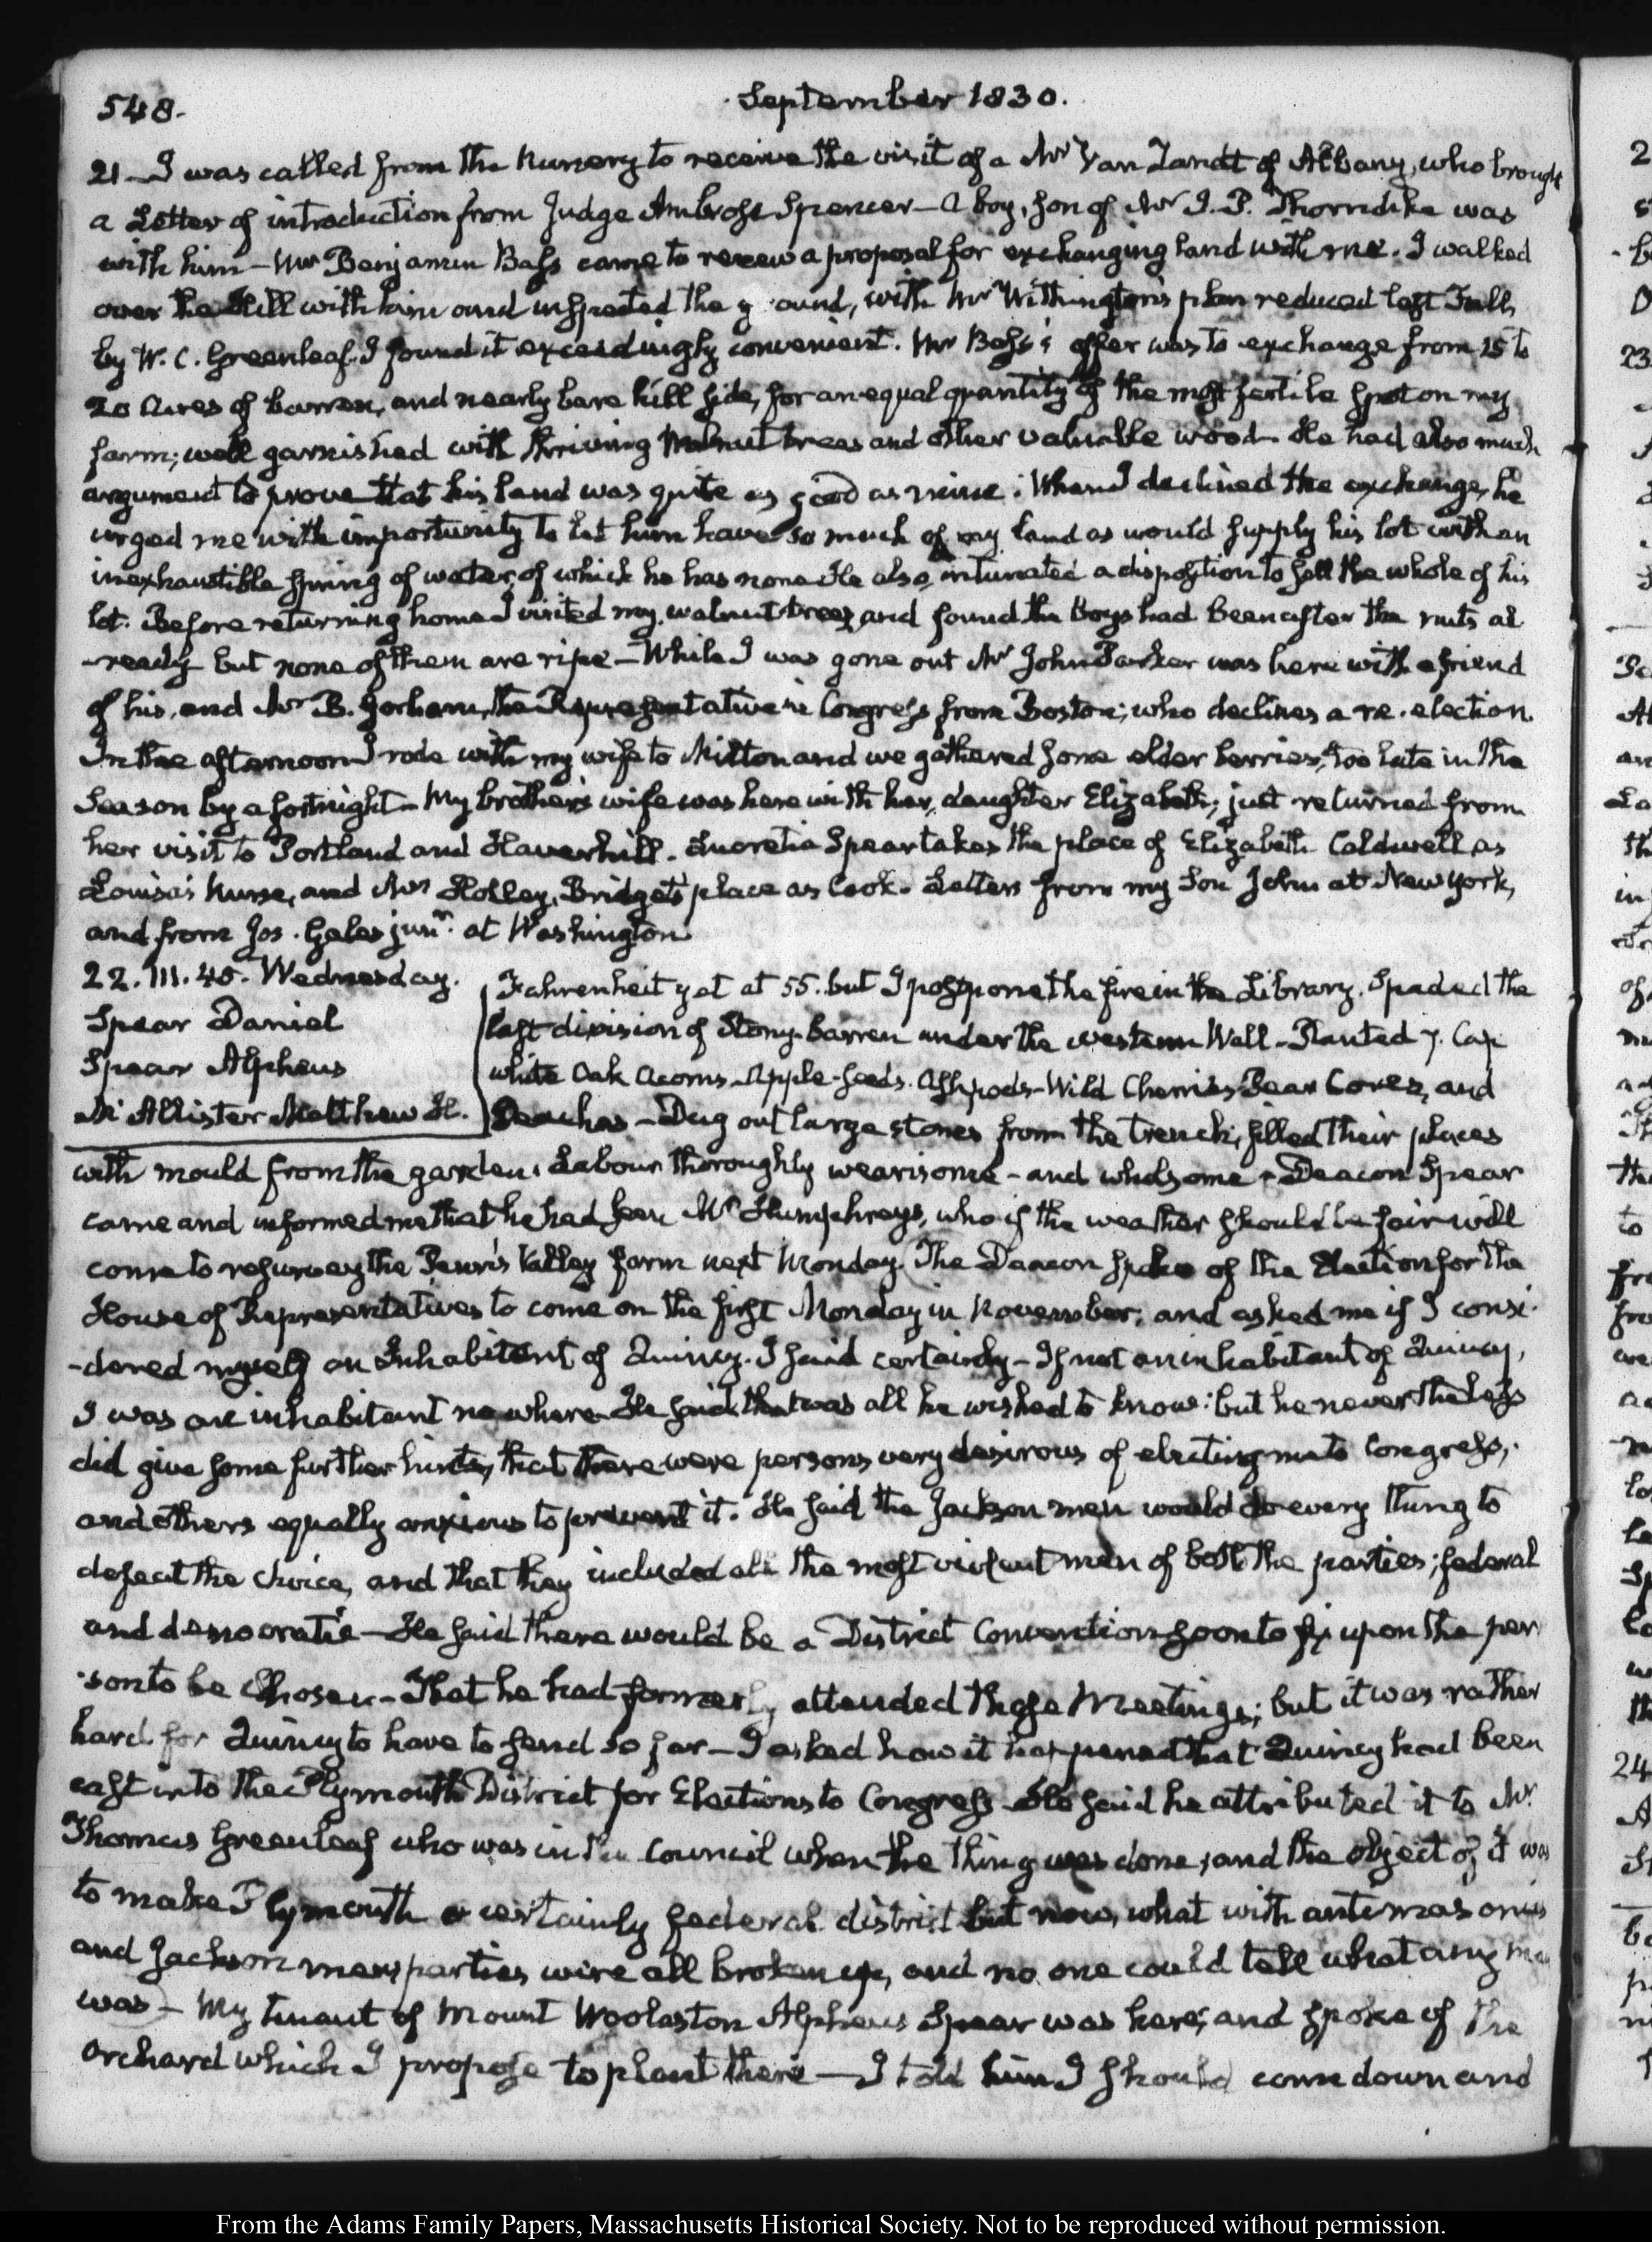 548.
September 1830.
21 - I was called from the Nursery to receive the visit of a Mr Van Zandt of Albany, who brought
a Letter of introduction from Judge Ambrose Spencer - A boy, son of Mr I. P. Thorndike was
with him - Mr Benjamin Bass came to renew a proposal for exchanging land with me. I walked
over the Hill with him and inspected the ground, with Mr Withington's plan reduced last Fall,
by W. C. Greenleaf. I found it exceedingly convenient. Mr Bass's offer was to exchange from 15 to
20 Acres of barren, and nearly bare hill side, for an equal quantity of the most fertile spot on my
farm; well garnished with thriving Walnut trees and other valuable wood. He had also much
argument to prove that his land was quite as good as mine. When I declined the exchange, he
urged me with importunity to let him have so much of my land as would supply his lot with an
inexhaustible spring of water, of which he has none. He also intimated a disposition to sell the whole of his
lot. Before returning home I visited my walnut trees, and found the Boys had been after the nuts al
-ready but none of them are ripe - While I was gone out Mr John Parker was here with a friend
of his, and Mr B. Gorham, the Representative in Congress from Boston; who declines a re-election.
In the afternoon I rode with my wife to Milton and we gathered some elder berries, too late in the
Season by a fortnight - My brother's wife was here with her daughter Elizabeth; just returned from
her visit to Portland and Haverhill. Lucretia Spear takes the place of Elizabeth Caldwell as
Louisa's Nurse, and Mrs Holley, Bridget's place as Cook. Letters from my Son John at New York,
and from Jos. Gales junr. at Washington
22. III. 45. Wednesday.
Spear Daniel
Spear Alpheus
Mc Allister Matthew H.
Fahrenheit yet at 55. but I postpone the fire in the Library. Spaded the
last division of Stony barren under the western Wall - Planted 7. Cap
white Oak Acorns - Apple-seeds. Ash pods - Wild Cherries Pear Cores, and
Peaches - Dug out large stones from the trench; filled their places
with mould from the garden. Labour thoroughly wearisome - and wholsome - Deacon Spear
came and informed me that he had seen Mr Humphreys, who if the weather should be fair will
come to resurvey the Penn's Valley farm next Monday. The Deacon spoke of the Election for the
House of Representatives to come on the first Monday in November; and asked me if I consi-
-dered myself an Inhabitant of Quincy. I said certainly - If not an inhabitant of Quincy,
I was an inhabitant no where. He said that was all he wished to know: but he nevertheless
did give some further hints, that there were persons very desirous of electing me to Congress,
and others equally anxious to prevent it. He said the Jackson men would do every thing to
defeat the choice, and that they included all the most violent men of both the parties; federal
and democratic - He said there would be a District Convention soon to fix upon the per
-son to be chosen - That he had formerly attended those Meetings; but it was rather
hard for Quincy to have to send so far - I asked how it happened that Quincy had been
cast into the Plymouth District for Elections to Congress. He said he attributed it to Mr
Thomas Greenleaf who was in the Council when the thing was done, and the object of it was
to make Plymouth a certainly federal district but now, what with antimasonics
and Jackson men, parties were all broken up, and no one could tell what any man
was - My tenant of Mount Woolaston Alpheus Spear was here; and spoke of the
Orchard which I propose to plant there - I told him I should come down and
From the Adams Family Papers, Massachusetts Historical Society. Not to be reproduced without permission.